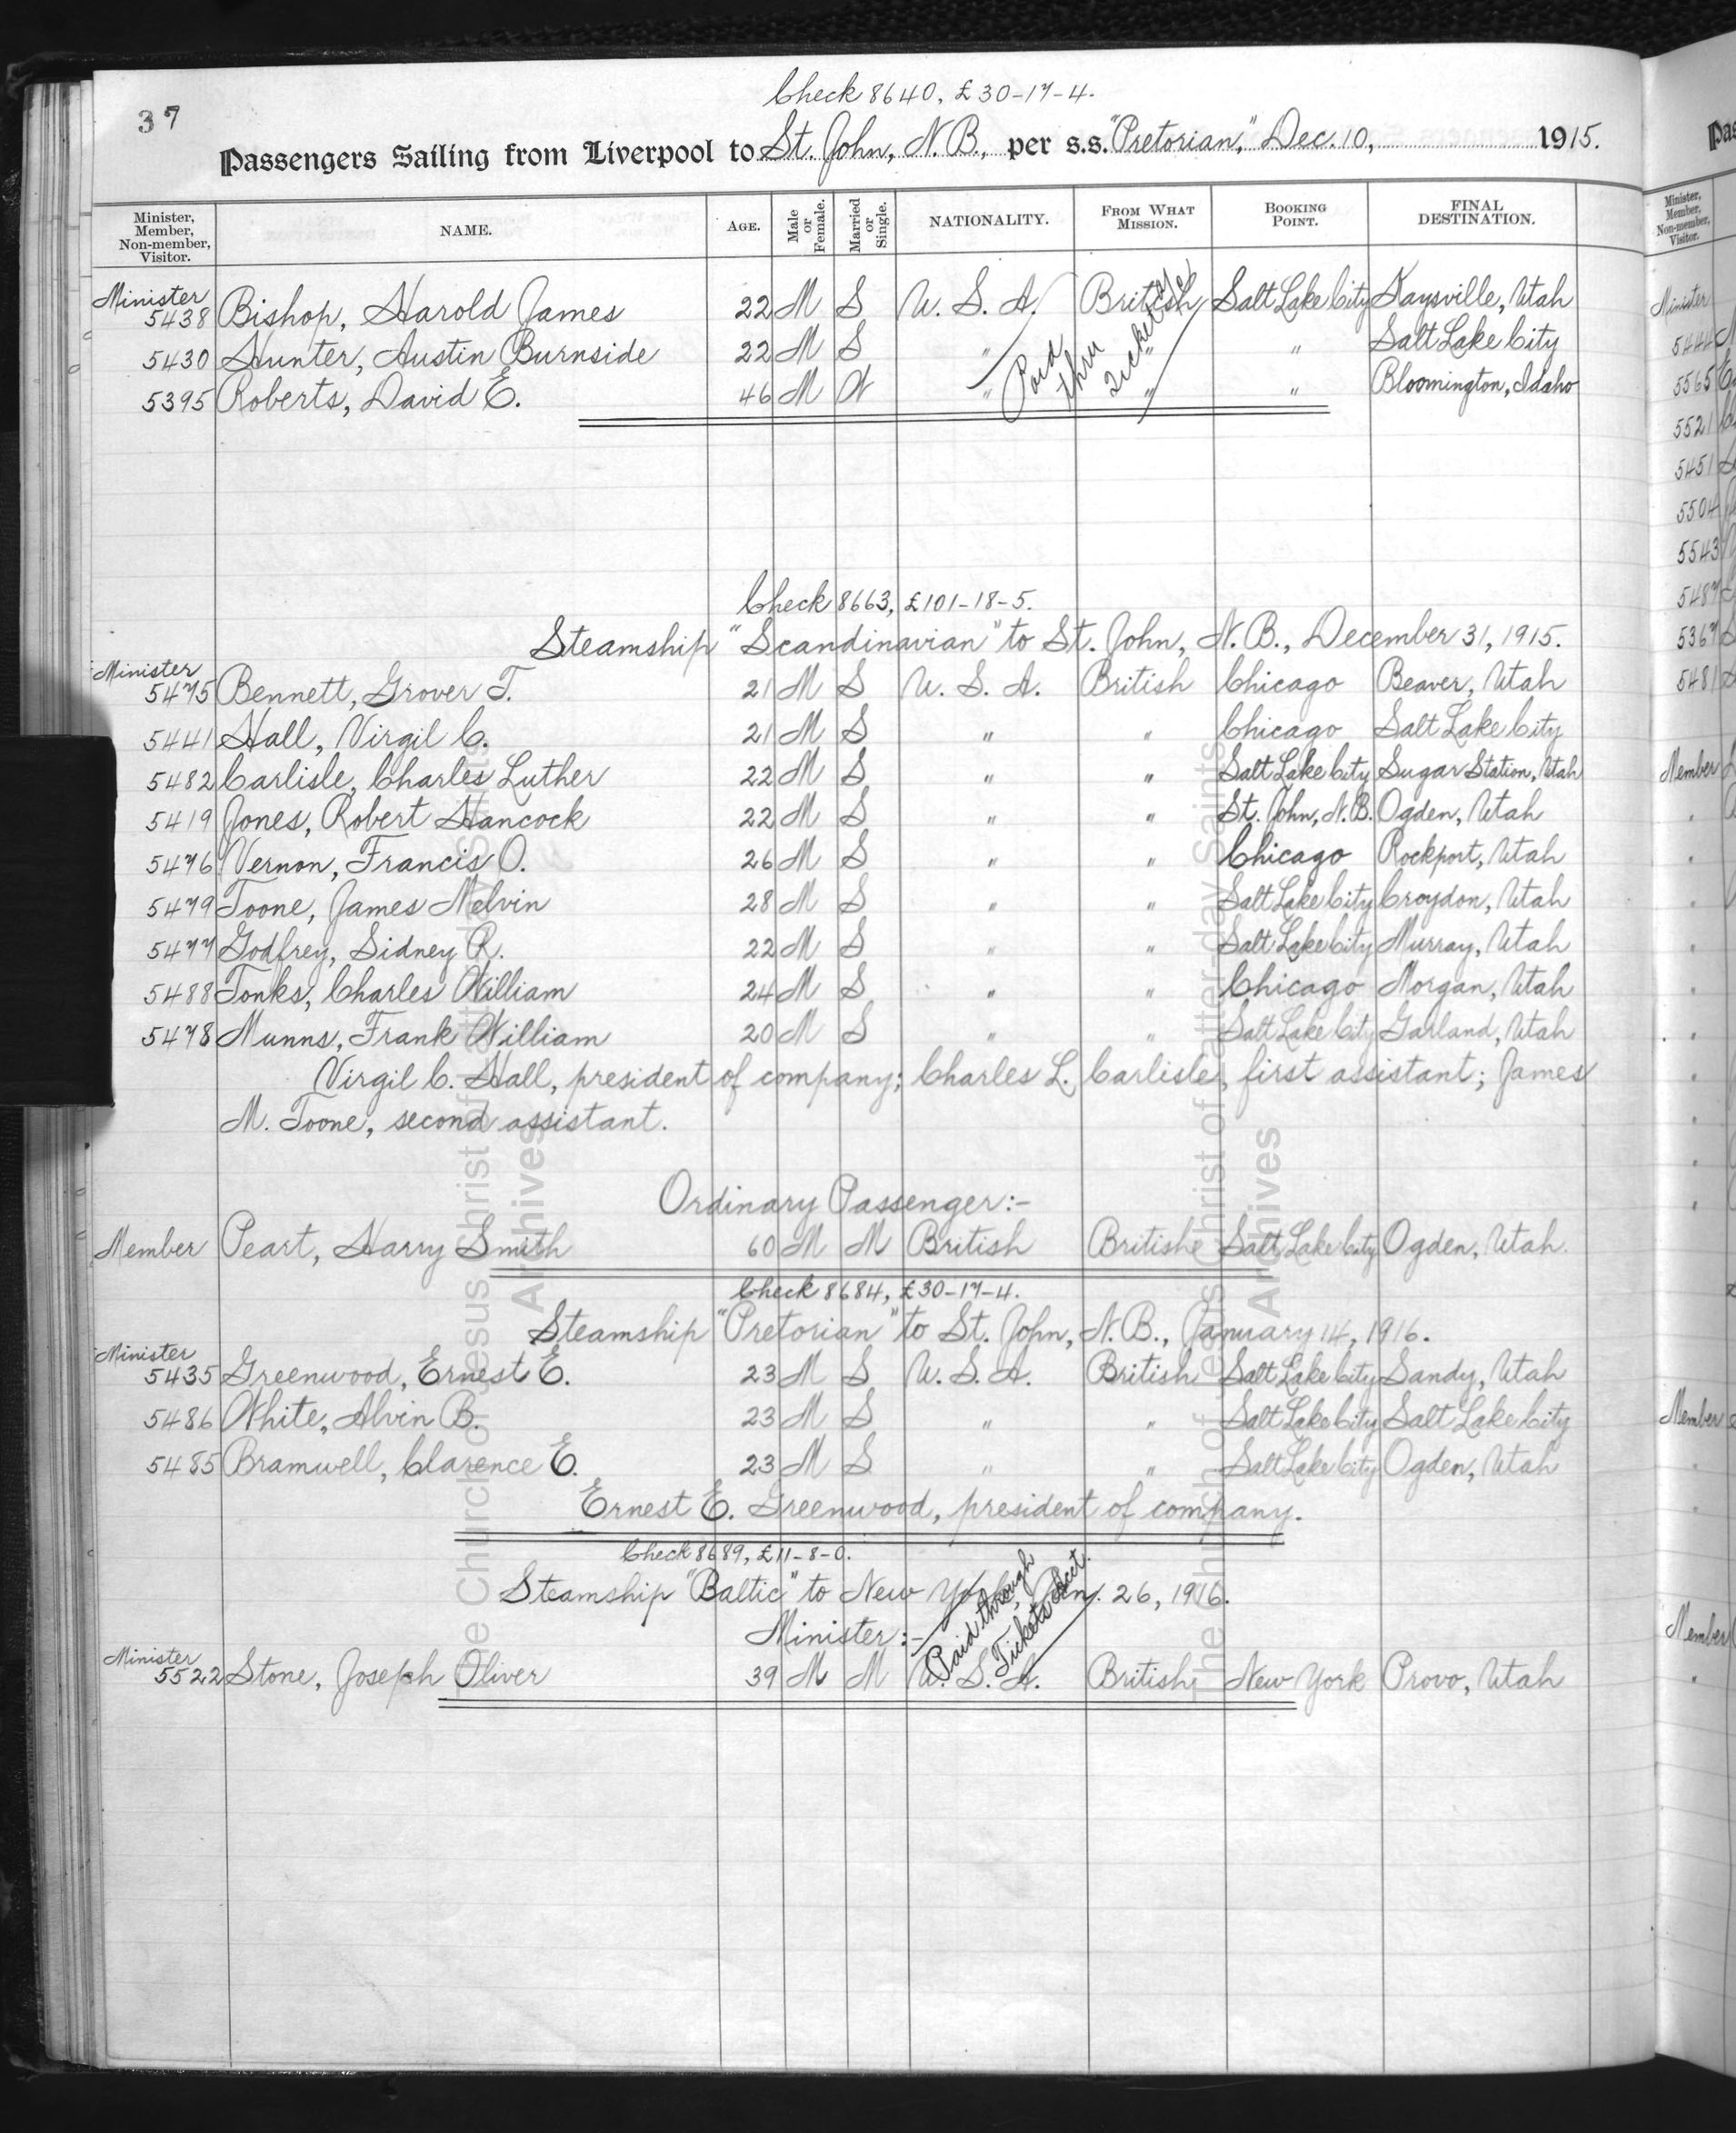 Check 8640, £30-17-4.
37
Passengers Sailing from Liverpool to St. John, N.B., per s.s. "Pretorian," Dec. 10, 1915.
Minister, Member, Non-member, Visitor. NAME. AGE. Male or Female. Married or Single. NATIONALITY. FROM WHAT MISSION. BOOKING POINT. FINAL DESTINATION.
Minister
5438 Bishop, Harold James 22 M S U. S. A. British Salt Lake City Kaysville, Utah
5430 Hunter, Austin Burnside 22 M S " " " Salt Lake City
5395 Roberts, David E. 46 M W " " " Bloomington, Idaho
Paid thru Ticket
Check 8663, £101-18-5.
Steamship "Scandinavian" to St. John, N. B., December 31, 1915.
Minister
5475 Bennett, Grover T. 21 M S U. S. A. British Chicago Beaver, Utah
5441 Hall, Virgil C. 21 M S " " Chicago Salt Lake City
5482 Carlisle, Charles Luther 22 M S " " Salt Lake City Sugar Station, Utah
5419 Jones, Robert Hancock 22 M S " " St. John, N.B. Ogden, Utah
5476 Vernon, Francis O. 26 M S " " Chicago Rockport, Utah
5479 Toone, James Melvin 28 M S " " Salt Lake City Croydon, Utah
5477 Godfrey, Sidney R. 22 M S " " Salt Lake City Murray, Utah
5488 Tonks, Charles William 24 M S " " Chicago Morgan, Utah
5478 Munns, Frank William 20 M S " " Salt Lake City Garland, Utah
Virgil C. Hall, president of company; Charles L. Carlisle, first assistant; James
M. Toone, second assistant.
Ordinary Passenger:-
Member Peart, Harry Smith 60 M M British British Salt Lake City Ogden, Utah.
Check 8684, £30-17-4.
Steamship "Pretorian" to St. John, N. B., January 14, 1916.
Minister
5435 Greenwood, Ernest E. 23 M S U. S. A. British Salt Lake City Sandy, Utah
5486 White, Alvin B. 23 M S " " Salt Lake City Salt Lake City
5485 Bramwell, Clarence E. 23 M S " " Salt Lake City Ogden, Utah
Ernest E. Greenwood, president of company.
Check 8689, £11-8-0.
Steamship "Baltic" to New York, Jan. 26, 1916.
Minister:-
Paid through Tickets Acct.
Minister
5522 Stone, Joseph Oliver 39 M M U. S. A. British New York Provo, Utah
The Church of Jesus Christ of Latter-day Saints
Archives
The Church of Jesus Christ of Latter-day Saints
Archives
Minister, Member, Non-member, Visitor.
Minister
5444
5565
5521
5451
5504
5543
5487
5367
5481
Member
Member
Member